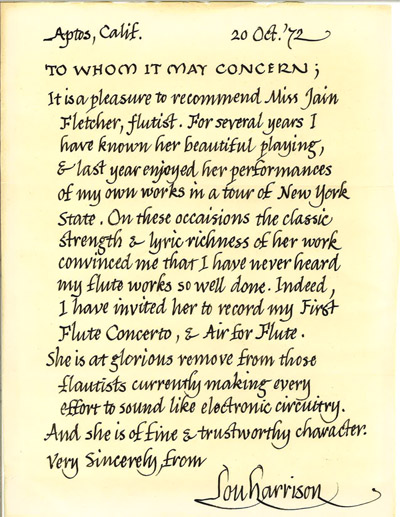 Aptos, Calif. 20 Oct. '72
TO WHOM IT MAY CONCERN;
It is a pleasure to recommend Miss Jain
Fletcher, flutist. For several years I
have known her beautiful playing,
& last year enjoyed her performances
of my own works in a tour of New York
State. On these occaisions the classic
strength & lyric richness of her work
convinced me that I have never heard
my flute works so well done. Indeed,
I have invited her to record my First
Flute Concerto, & Air for Flute.
She is at glorious remove from those
flautists currently making every
effort to sound like electronic circuitry.
And she is of fine & trustworthy character.
Very Sincerely, from
Lou Harrison